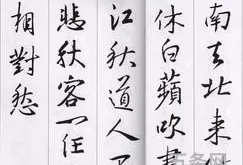 南去北来
休白蘋吹
江秋道人不
悲秋客一任
相對愁